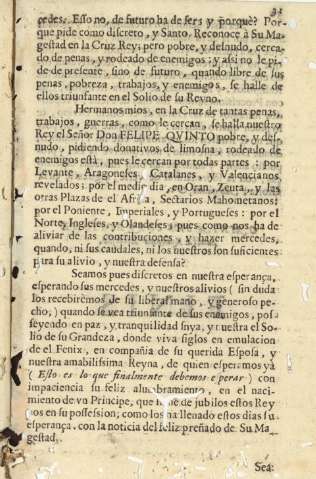 cedes. Esso no, de futuro ha de ser: y porquè? Por-
que pide como discreto, y Santo. Reconoce à Su Ma-
gestad en la Cruz Rey; pero pobre, y desnudo, cerca-
do de penas, y rodeado de enemigos; y assi no le pi-
de de presente, sino de futuro, quando libre de sus
penas, pobreza, trabajos, y enemigos, se halle de
ellos triunfante en el Solio de su Reyno.
Hermanos mios, en la Cruz de tantas penas,
trabajos, guerras, como le cercan, se halla nuestro
Rey el Señor Don FELIPE QVINTO pobre, y des-
nudo, pidiendo donativos de limosna, rodeado de
enemigos està, pues le cercan por todas partes: por
Levante, Aragoneses, Catalanes, y Valencianos
revelados: por el medio dia, en Oran, Zeuta, y las
otras Plazas de el Africa, Sectarios Mahometanos:
por el Poniente, Imperiales, y Portugueses: por el
Norte, Ingleses, y Olandeses; pues como nos ha de
aliviar de las contribuciones, y hazer mercedes,
quando, ni sus caudales, ni los nuestros son suficientes
para su alivio, y nuestra defensa?
Seamos pues discretos en nuestra esperança,
esperando sus mercedes, y nuestros alivios (sin duda
los recibirèmos de su liberal mano, y generoso pe-
cho,) quando se vea triunfante de sus enemigos, pos-
seyendo en paz, y tranquilidad suya, y nuestra el So-
lio de su Grandeza, donde viva siglos en emulacion
de el Fenix, en compañia de su querida Esposa, y
nuestra amabilissima Reyna, de quien esperamos yà
(Esto es lo que finalmente debemos esperar) con
impaciencia su feliz alumbramiento, en el naci-
miento de vn Principe, que llene de jubilos estos Rey
nos en su possession; como los ha llenado estos dias su
esperança, con la noticia del feliz preñado de Su Ma-
gestad.
Sea: